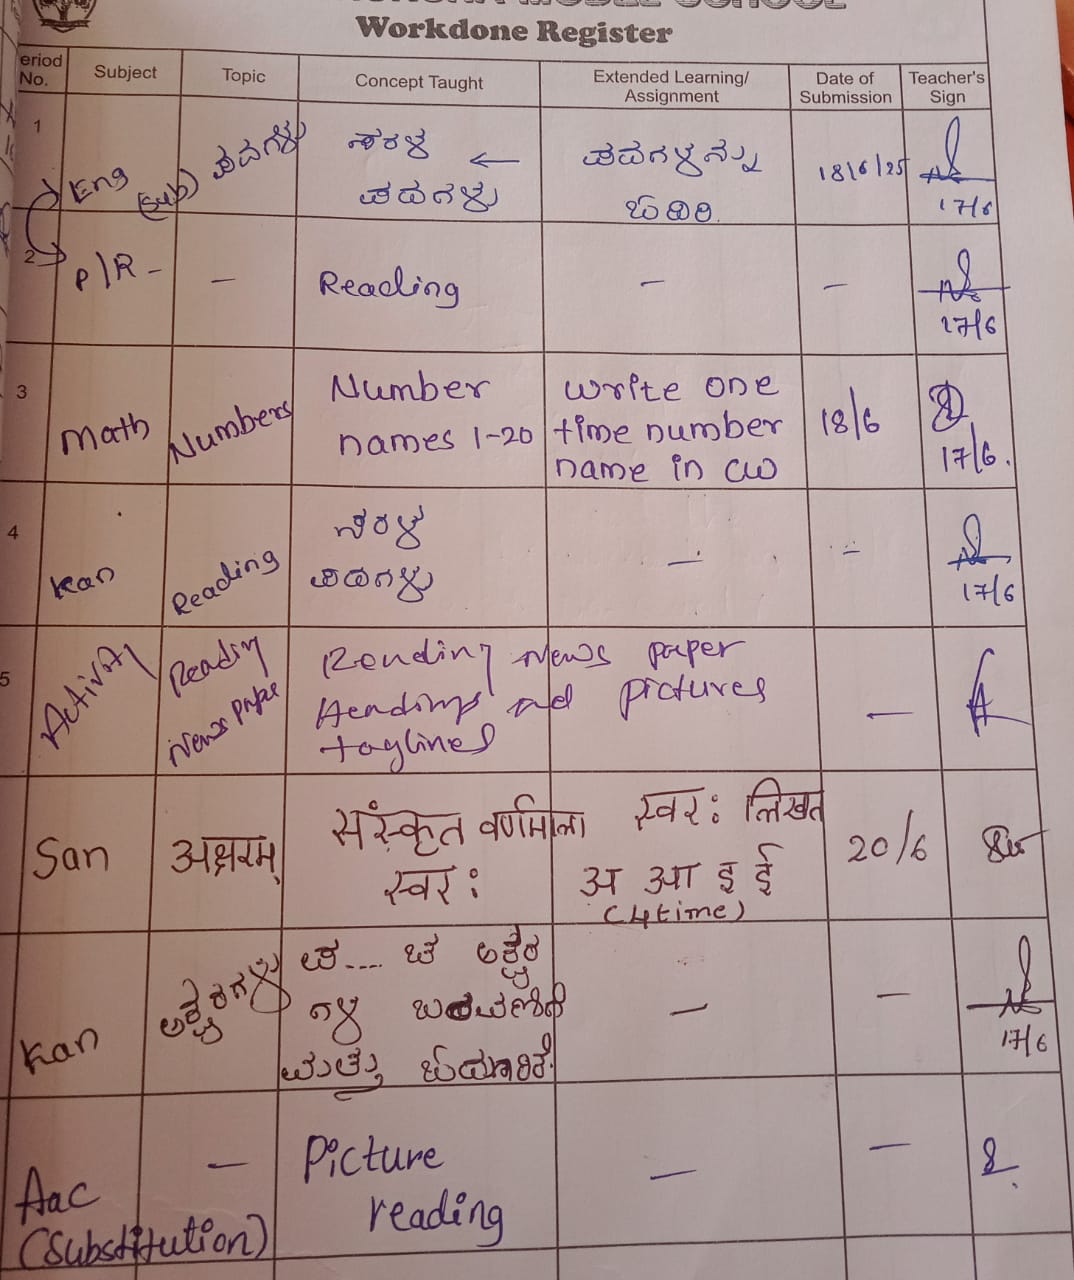 Workdone Register
eriod No. Subject Topic Concept Taught Extended Learning/ Assignment Date of Submission Teacher's Sign
1 Eng (Sub) ಪದಗಳು ಸರಳ ← ಪದಗಳು ಪದಗಳನ್ನು ಓದಿರಿ. 18/6/25 17/6
2 P/R - — Reading — — 17/6
3 Math Numbers Number names 1-20 write one time number name in cw 18/6 17/6.
4 Kan Reading ಸರಳ ಪದಗಳು — — 17/6
5 Activity Readin News pape Reading News paper Headings and pictures taglines —
San अक्षरम् संस्कृत वर्णमाला स्वर: स्वर: लिखत अ आ इ ई (4time) 20/6
Kan ಅಕ್ಷರಗಳು ಚ ಅಕ್ಷರ ಗಳ ಬರವಣಿಗೆ ಮತ್ತು — — 17/6
Aac (Substitution) — Picture reading — —